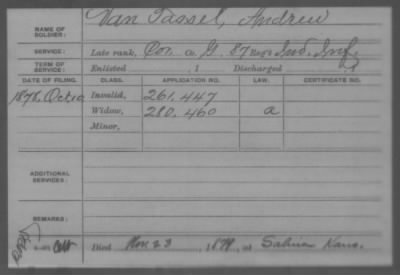 NAME OF SOLDIER: Van Tassel, Andrew
SERVICE: Late rank, Cor. Co. G. 87 Reg't Ind. Inf.
TERM OF SERVICE: Enlisted , 1 Discharged , 1
DATE OF FILING. CLASS. APPLICATION NO. LAW. CERTIFICATE NO.
1878, Oct 10 Invalid, 261,447
Widow, 280,460 a
Minor,
ADDITIONAL SERVICES:
REMARKS:
Died Nov. 23, 1879, at Salina Kans.